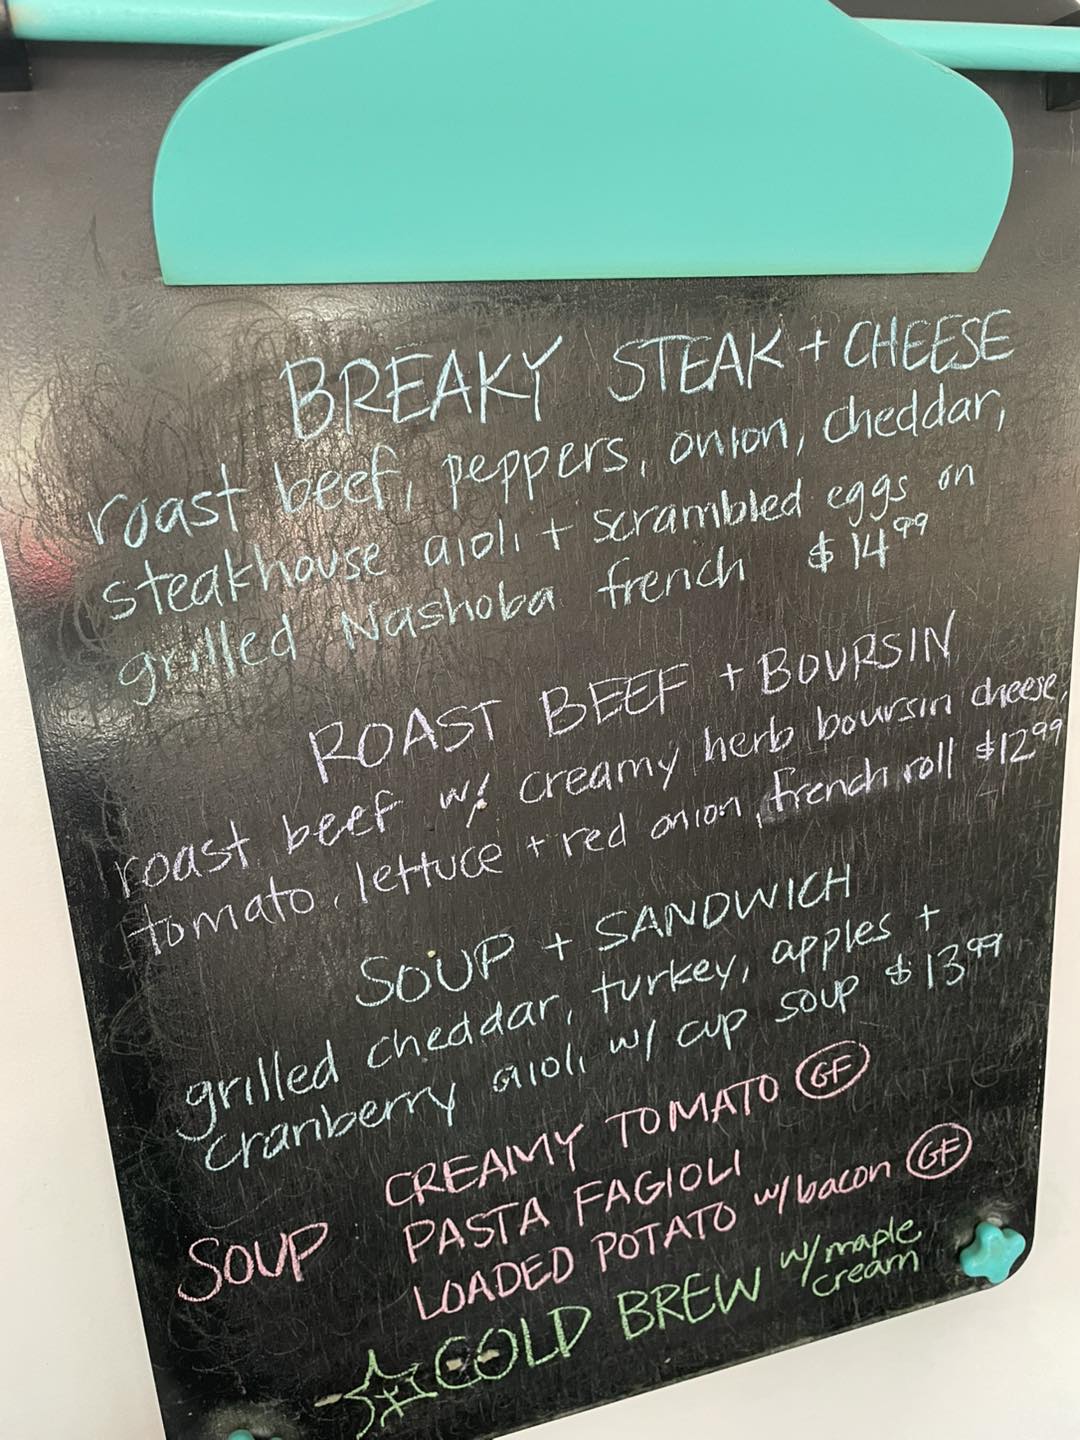 BREAKY STEAK + CHEESE
roast beef, peppers, onion, cheddar,
steakhouse aioli + scrambled eggs on
grilled Nashoba french $14.99
ROAST BEEF + BOURSIN
roast beef w/ creamy herb boursin cheese,
tomato, lettuce + red onion, french roll $12.99
SOUP + SANDWICH
grilled cheddar, turkey, apples +
cranberry aioli w/ cup soup $13.99
CREAMY TOMATO GF
SOUP PASTA FAGIOLI
LOADED POTATO w/bacon GF
COLD BREW w/ maple
cream